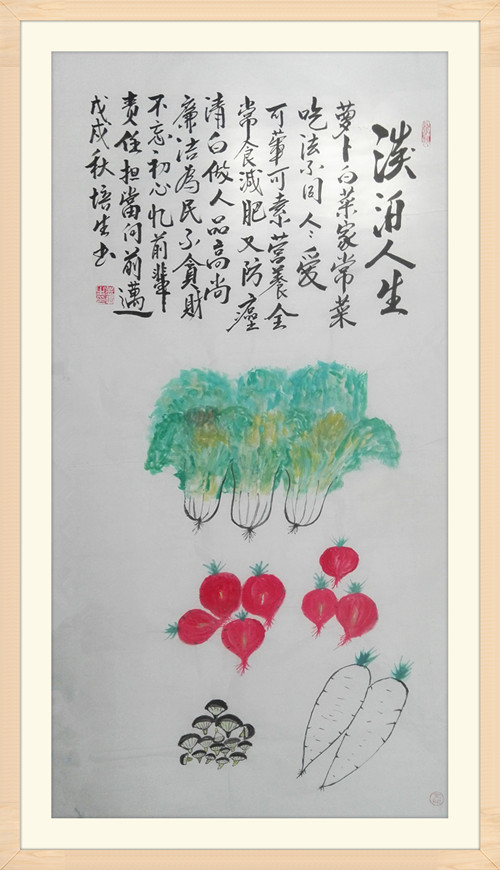 淡泊人生
萝卜白菜家常菜
吃法不同人人爱
可荤可素营養全
常食減肥又防癌
清白做人品高尚
廉洁為民不貪財
不忘初心忆前輩
責任担當向前邁
戊戌秋培生书